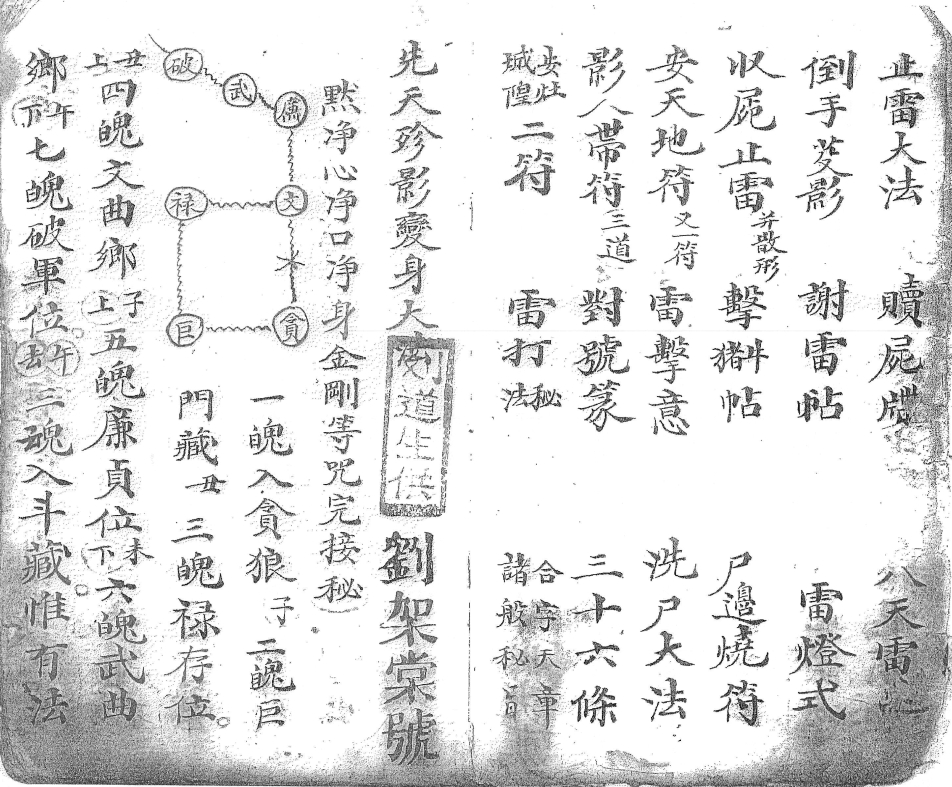 止雷大法　贖屍牒　八天雷
倒手茭影　謝雷帖　雷燈式
収屍止雷并散形　擊猪斗帖　尸邊燒符
安天地符又一符　雷擊意　洗尸大法
影人帶符三道　對號篆　三十六條
安灶城隍二符　雷打秘法　合字天章諸般秘旨
先天殄影變身大法　劉架棠號
劉道生供
黙净心净口净身金剛等咒完接秘
破
武
廉
文
禄
巨
貪
一魄入貪狼子二魄巨
門藏丑三魄禄存位。
丑上四魄文曲鄉子上五魄廉貞位未下六魄武曲
鄉午下七魄破軍位。午去三魂入斗藏。惟有法